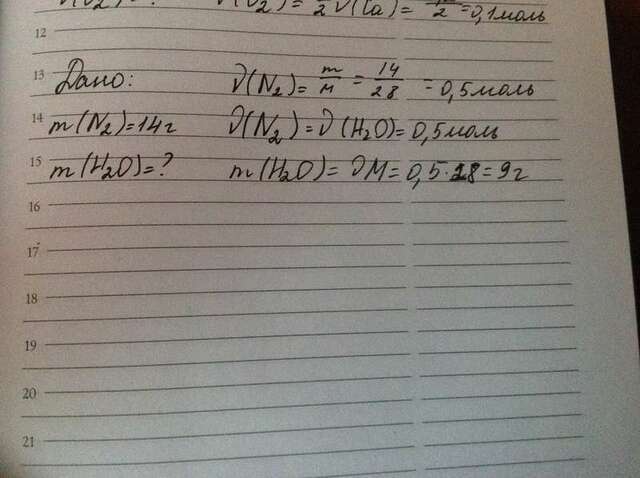 ν(O₂) = ? ν(O₂) = 1/2 ν(Ca) = /2 = 0,1 моль
12
13 Дано: ν(N₂) = m/M = 14/28 = 0,5 моль
14 m(N₂) = 14 г ν(N₂) = ν(H₂O) = 0,5 моль
15 m(H₂O) = ? m(H₂O) = νM = 0,5·18 = 9 г
16
17
18
19
20
21